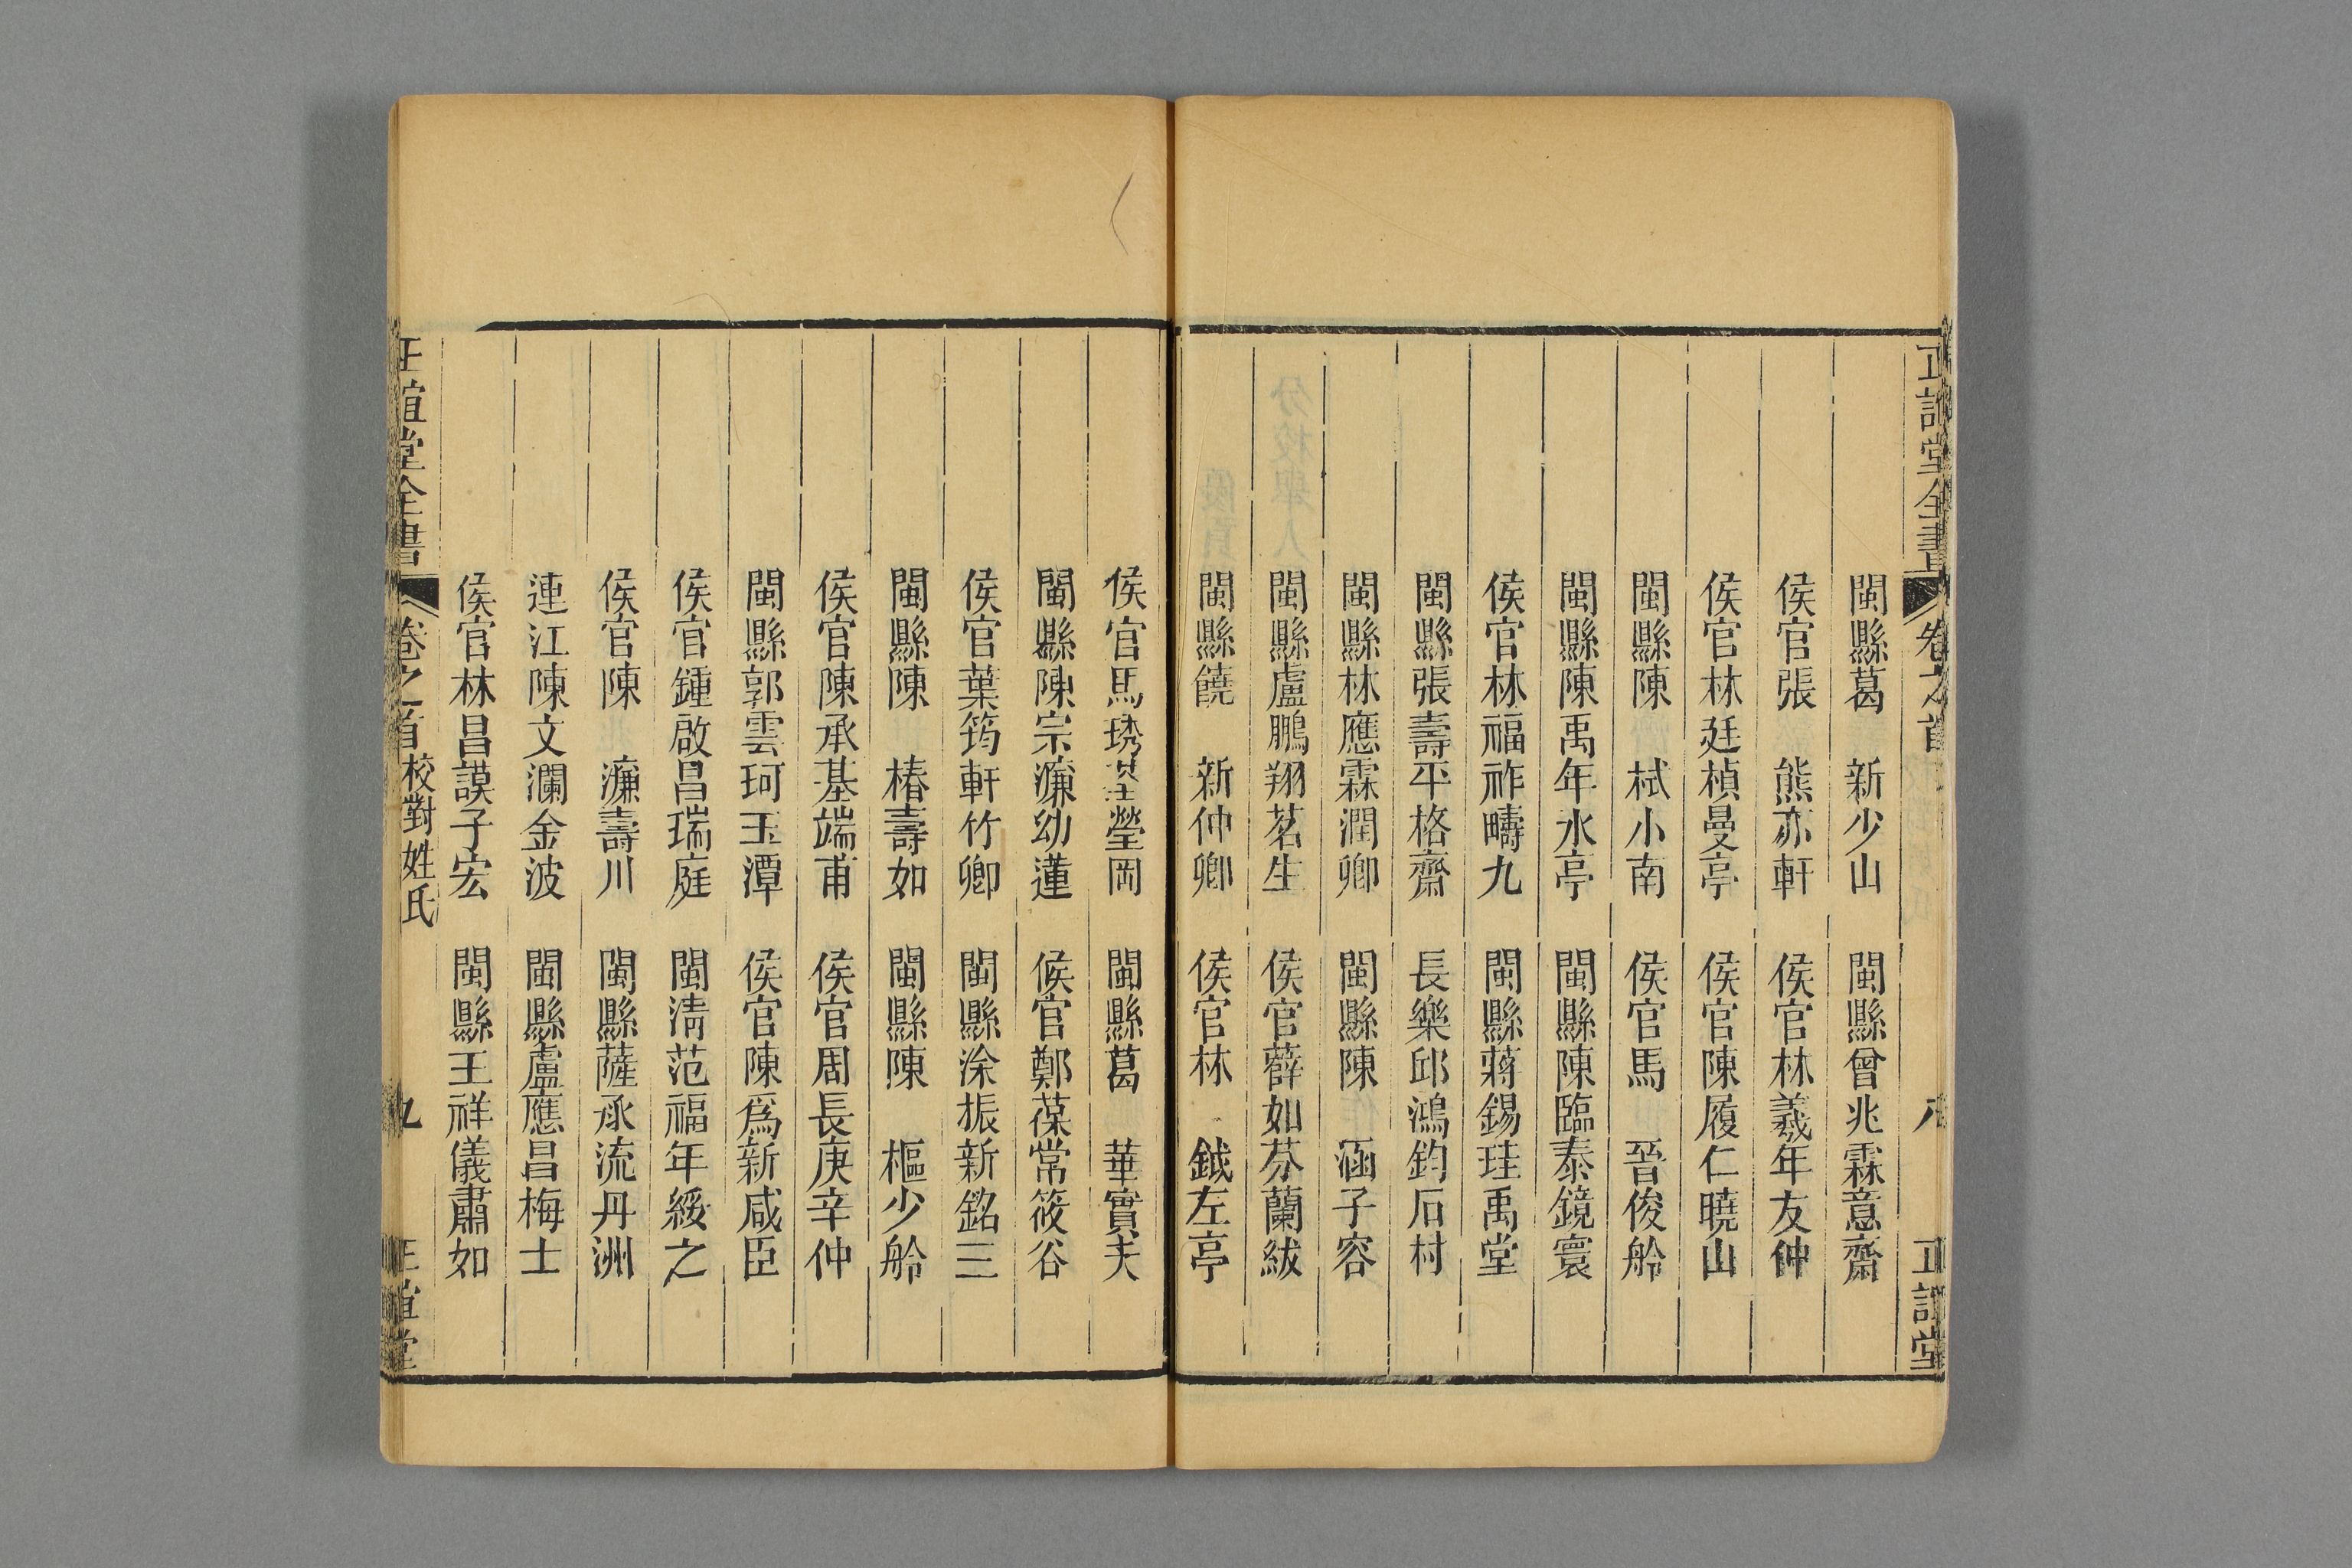 正誼堂全書 卷之首 八 正誼堂
閩縣葛 新少山 閩縣曾兆霖意齋
侯官張 熊亦軒 侯官林羲年友仲
侯官林廷楨曼亭 侯官陳履仁曉山
閩縣陳 栻小南 侯官馬 晉俊舲
閩縣陳禹年氷亭 閩縣陳臨泰鏡寰
侯官林福祚疇九 閩縣蔣錫珪禹堂
閩縣張壽平格齋 長樂邱鴻鈞石村
閩縣林應霖潤卿 閩縣陳 涵子容
閩縣盧鵬翔茗生 侯官薛如芬蘭紱
閩縣饒 新仲卿 侯官林 鉞左亭
侯官馬琇瑩岡 閩縣葛 華實夫
閩縣陳宗濂幼蓮 候官鄭葆常筱谷
侯官葉筠軒竹卿 閩縣涂振新銘三
閩縣陳 椿壽如 閩縣陳 樞少舲
侯官陳承基端甫 侯官周長庚辛仲
閩縣郭雲珂玉潭 侯官陳爲新咸臣
侯官鍾啟昌瑞庭 閩淸范福年綏之
侯官陳 濂壽川 閩縣薩承流丹洲
連江陳文瀾金波 閩縣盧應昌梅士
侯官林昌謨子宏 閩縣王祥儀肅如
正誼堂全書 卷之首 校對姓氏 九 正誼堂